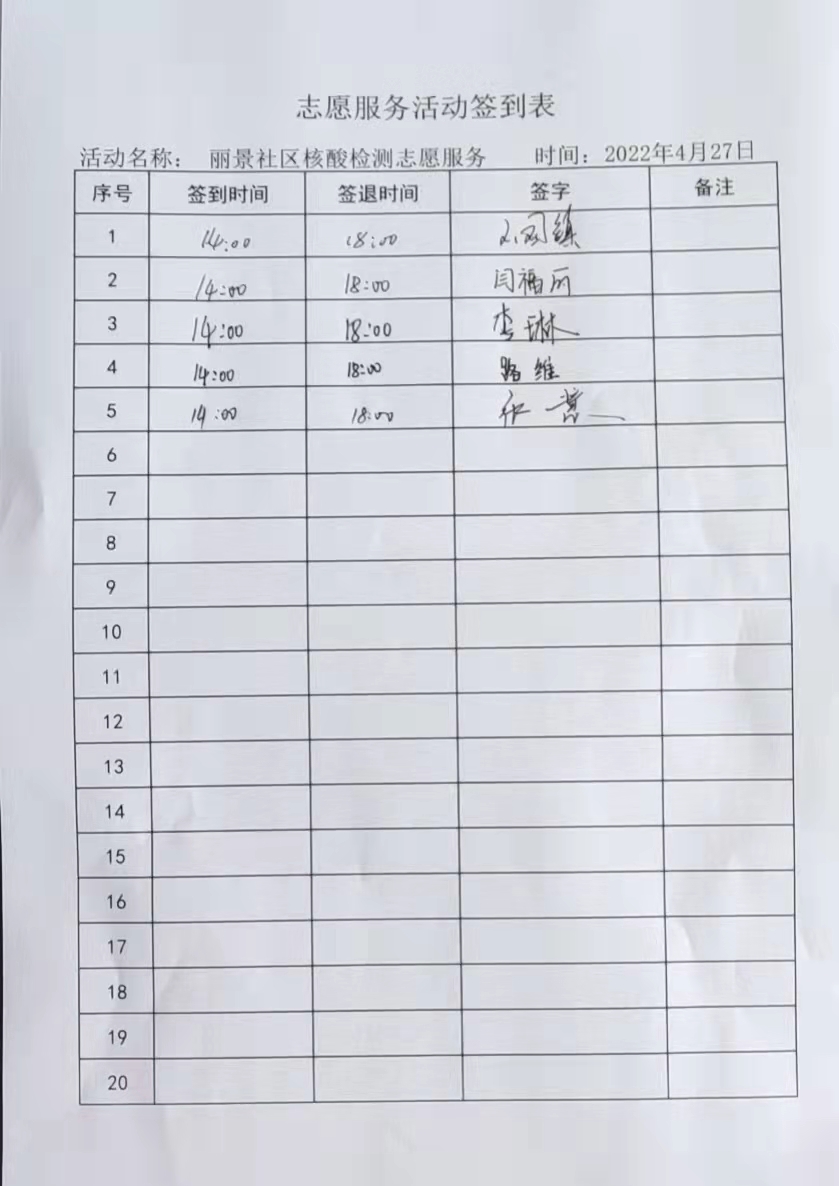 志愿服务活动签到表
活动名称： 丽景社区核酸检测志愿服务 时间：2022年4月27日
序号 签到时间 签退时间 签字 备注
1 14:00 18:00
2 14:00 18:00 闫福所
3 14:00 18:00 李琳
4 14:00 18:00 路维
5 14:00 18:00
6
7
8
9
10
11
12
13
14
15
16
17
18
19
20